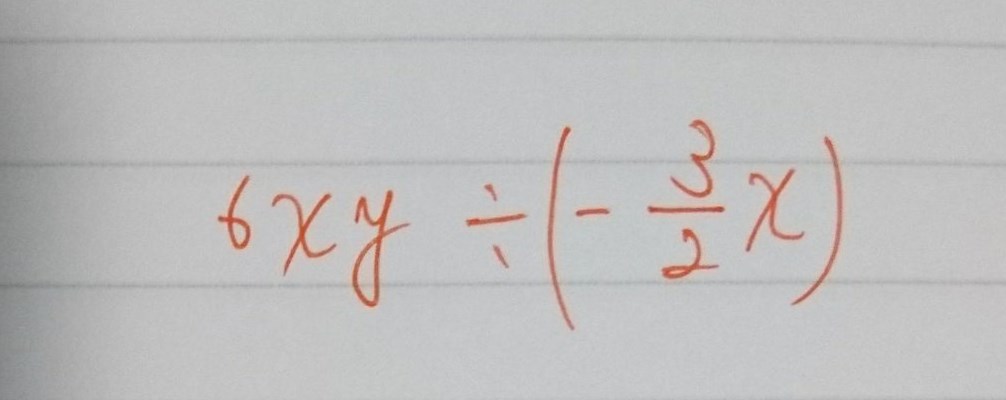 6xy ÷ (- 3/2 x)